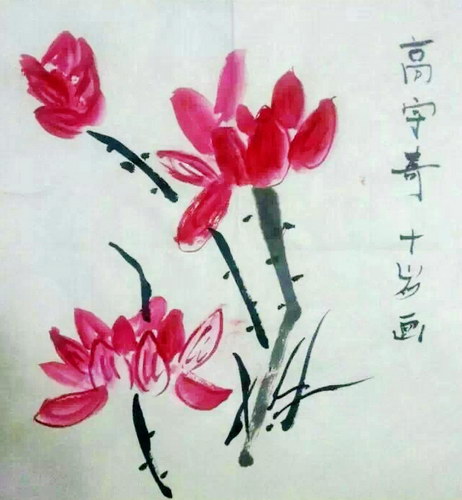 高宇奇 十岁画